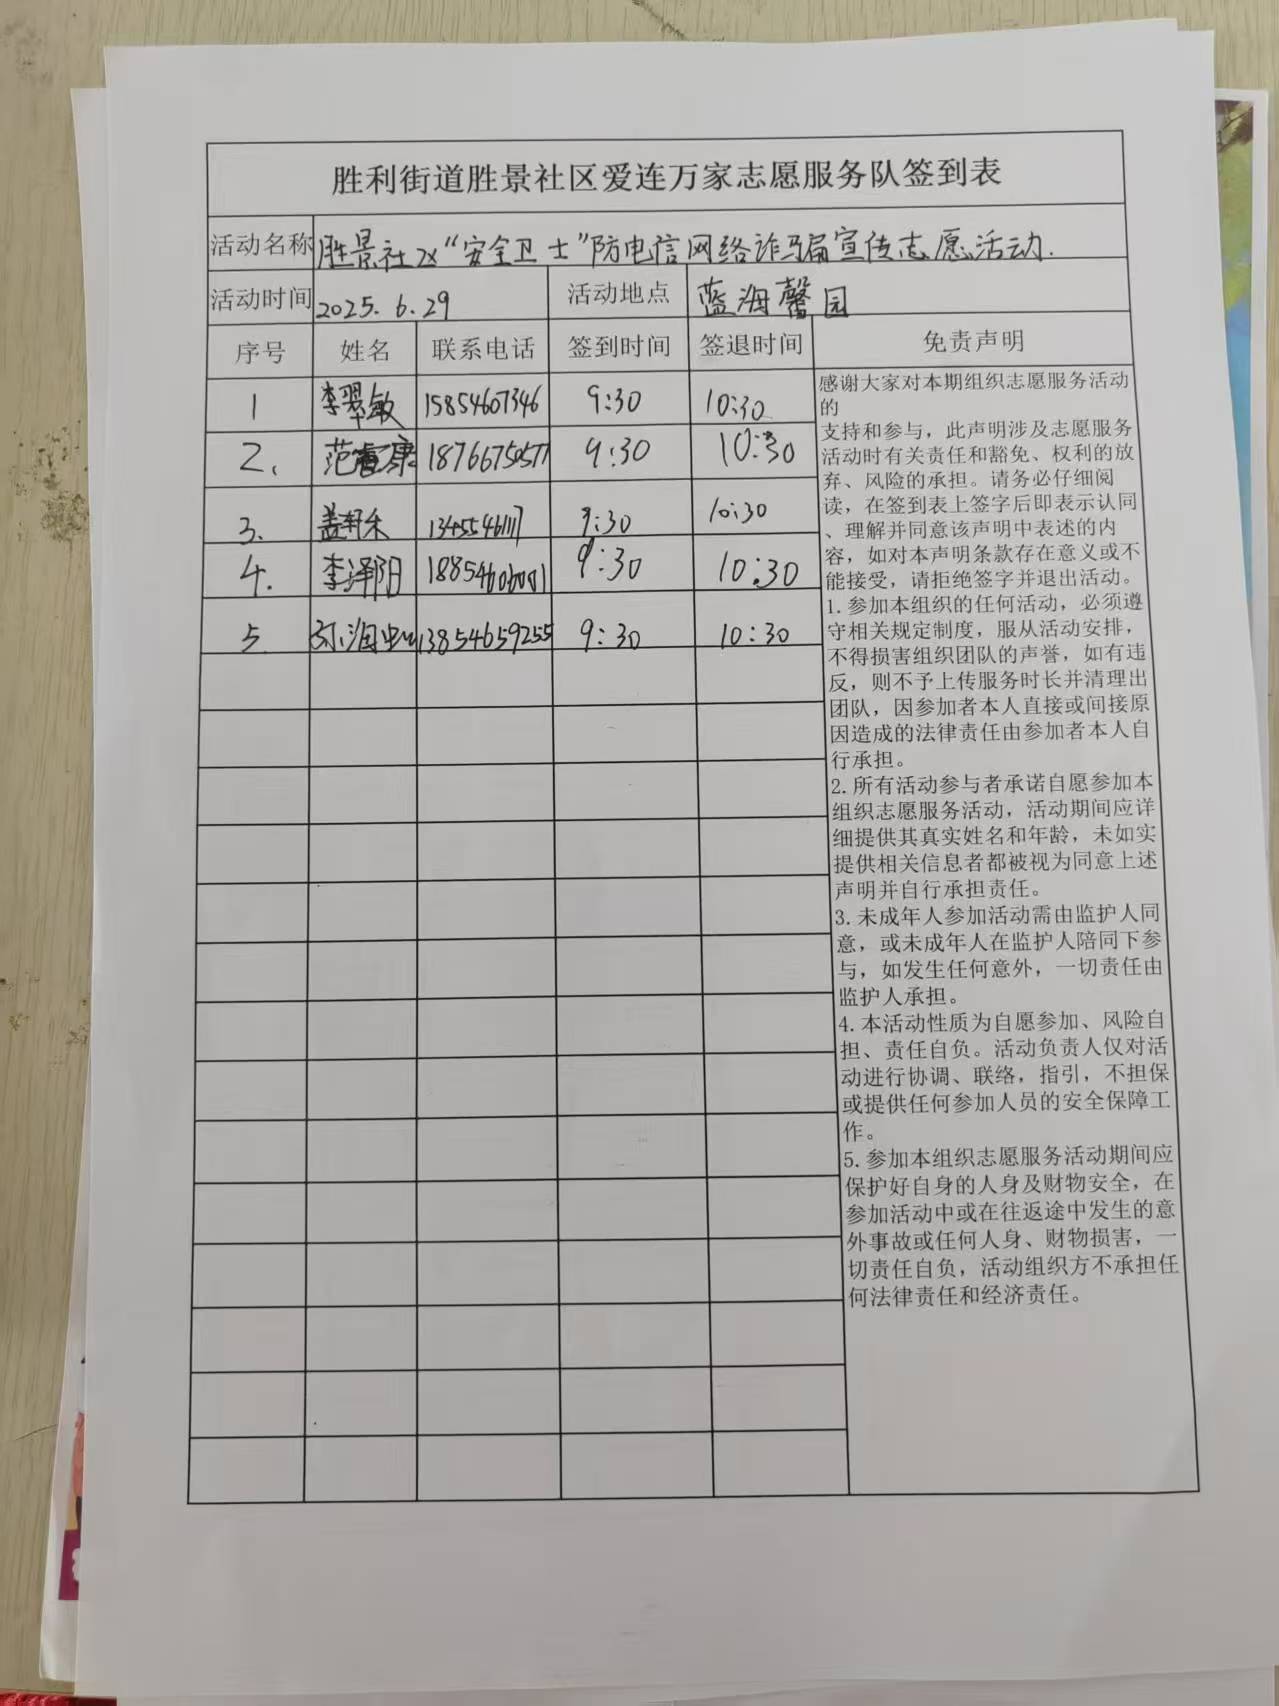 胜利街道胜景社区爱连万家志愿服务队签到表
活动名称 胜景社区“安全卫士”防电信网络诈骗宣传志愿活动.
活动时间 2025.6.29 活动地点 蓝海馨园
序号 姓名 联系电话 签到时间 签退时间 免责声明
1 李翠敏 15854607346 9:30 10:30
2. 范 康 18766750577 9:30 10:30
3. 盖轩禾 9:30 10:30
4. 李泽阳 9:30 10:30
5. 13854659255 9:30 10:30
感谢大家对本期组织志愿服务活动
的
支持和参与，此声明涉及志愿服务
活动时有关责任和豁免、权利的放
弃、风险的承担。请务必仔细阅
读，在签到表上签字后即表示认同
、理解并同意该声明中表述的内
容，如对本声明条款存在意义或不
能接受，请拒绝签字并退出活动。
1.参加本组织的任何活动，必须遵
守相关规定制度，服从活动安排，
不得损害组织团队的声誉，如有违
反，则不予上传服务时长并清理出
团队，因参加者本人直接或间接原
因造成的法律责任由参加者本人自
行承担。
2.所有活动参与者承诺自愿参加本
组织志愿服务活动，活动期间应详
细提供其真实姓名和年龄，未如实
提供相关信息者都被视为同意上述
声明并自行承担责任。
3.未成年人参加活动需由监护人同
意，或未成年人在监护人陪同下参
与，如发生任何意外，一切责任由
监护人承担。
4.本活动性质为自愿参加、风险自
担、责任自负。活动负责人仅对活
动进行协调、联络，指引，不担保
或提供任何参加人员的安全保障工
作。
5.参加本组织志愿服务活动期间应
保护好自身的人身及财物安全，在
参加活动中或在往返途中发生的意
外事故或任何人身、财物损害，一
切责任自负，活动组织方不承担任
何法律责任和经济责任。